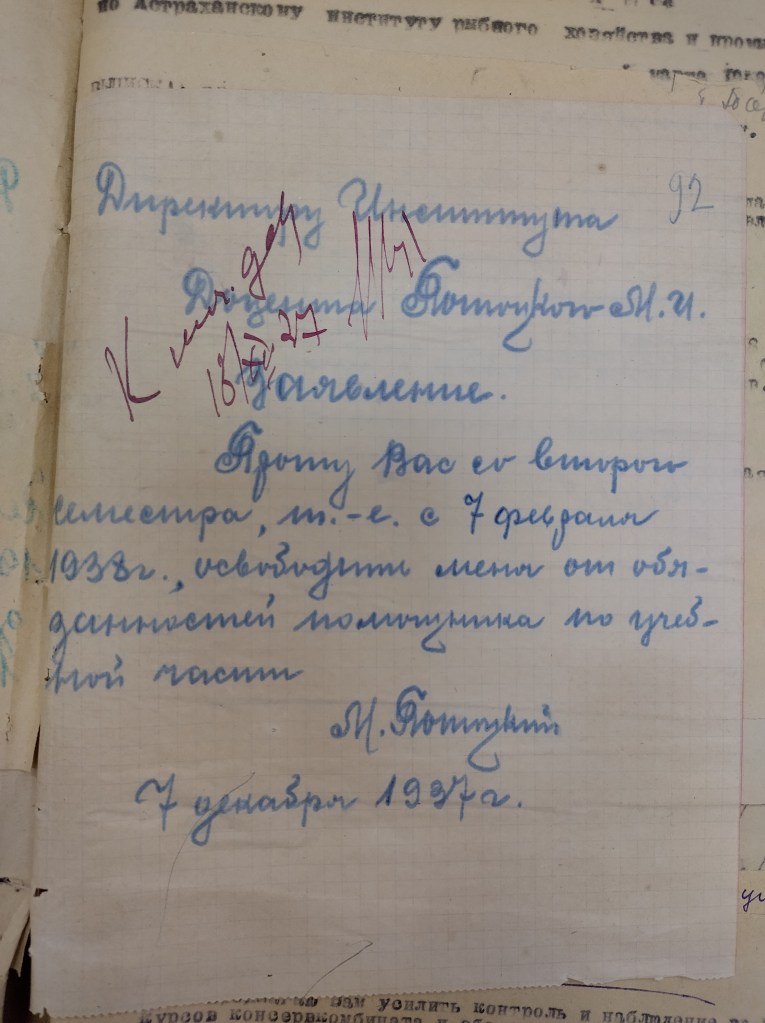 по Астраханскому институту рыбного хозяйства и
92
Директору Института
Доцента Потоцкого М.И.
К
Заявление.
Прошу Вас со второго
семестра, т.-е. с 7 февраля
1938г., освободить меня от обя-
занностей помощника по учеб-
ной части
М. Потоцкий
7 декабря 1937г.
вам усилить контроль и наблюдение
Курсов Консервкомбината и